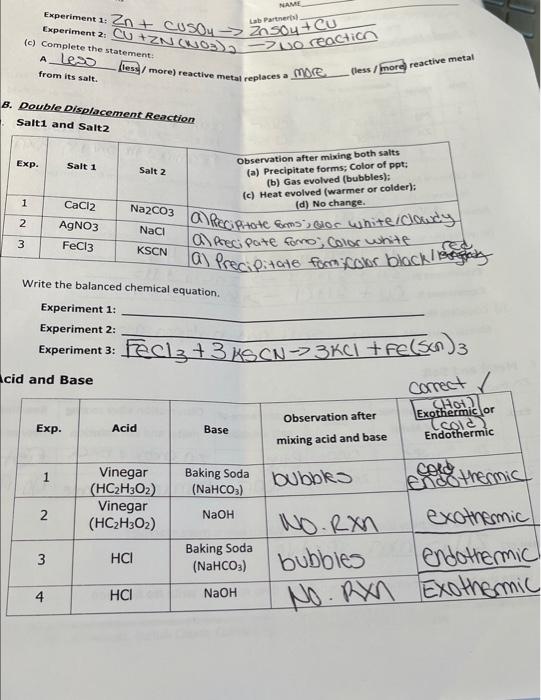 NAME
Experiment 1: Zn + CuSO4 -> ZnSO4 + Cu
Lab Partner(s)
Experiment 2: CU + ZN(NO3)2 -> NO reaction
(c) Complete the statement:
A less (less / more) reactive metal replaces a more (less / more) reactive metal
from its salt.
B. Double Displacement Reaction
Salt1 and Salt2
Exp. Salt 1 Salt 2 Observation after mixing both salts
(a) Precipitate forms; Color of ppt;
(b) Gas evolved (bubbles);
(c) Heat evolved (warmer or colder);
(d) No change.
1 CaCl2 Na2CO3 a) Reciptate forms; color white/cloudy
2 AgNO3 NaCl a) Precipate forms; Color white
3 FeCl3 KSCN a) Precipitate form; color black/ red
Write the balanced chemical equation.
Experiment 1:
Experiment 2:
Experiment 3: FeCl3 + 3KSCN -> 3KCl + Fe(SCN)3
cid and Base
correct ✓
Exp. Acid Base Observation after
mixing acid and base
(Hot)
Exothermic or
(cold)
Endothermic
1 Vinegar
(HC2H3O2) Baking Soda
(NaHCO3) bubbles cold
endothermic
2 Vinegar
(HC2H3O2) NaOH No. Rxn exothermic
3 HCl Baking Soda
(NaHCO3) bubbles endothermic
4 HCl NaOH No. Rxn Exothermic